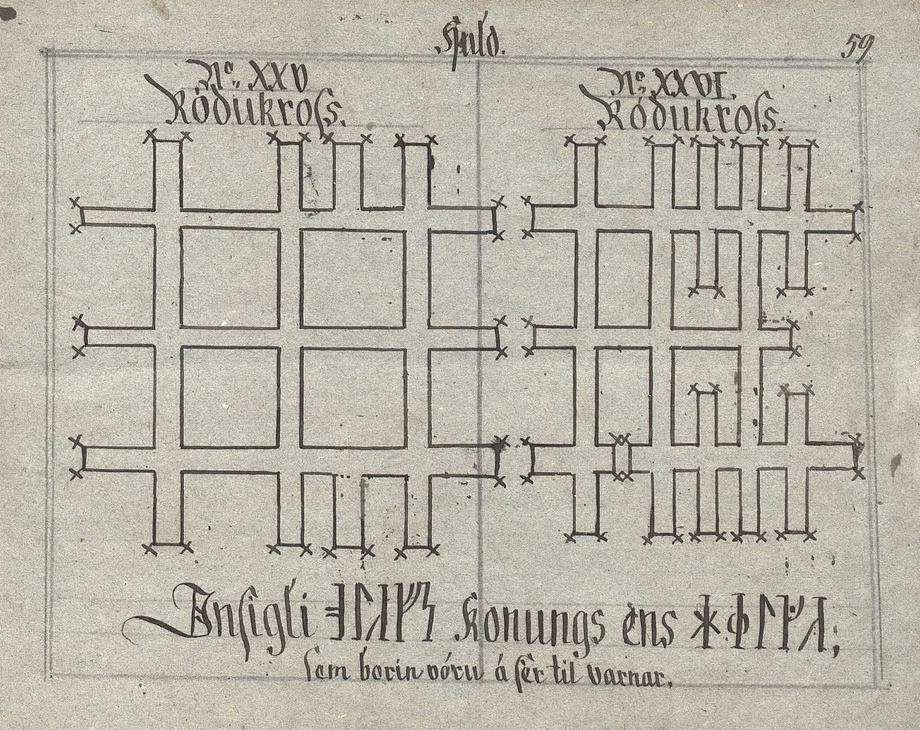 Huld.
59
No. XXV
Róðukross.
No. XXVI.
Róðukross.
Insigli ᚯᛚᛆᚠᛋ Konungs ens ᚼᛂᛚᚵᛆ;
sem borin vóru á sèr til varnar.